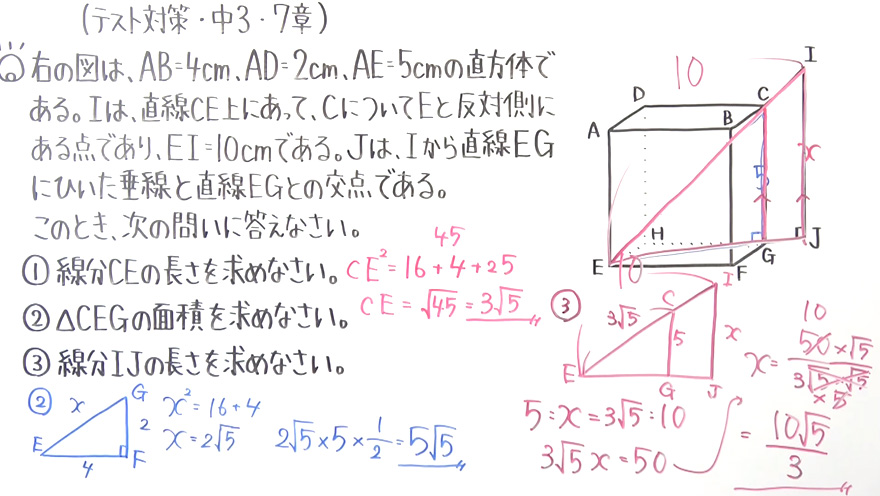 (テスト対策・中3・7章)
右の図は、AB=4cm、AD=2cm、AE=5cmの直方体で
ある。Iは、直線CE上にあって、CについてEと反対側に
ある点であり、EI=10cmである。Jは、Iから直線EG
にひいた垂線と直線EGとの交点である。
このとき、次の問いに答えなさい。
① 線分CEの長さを求めなさい。
② △CEGの面積を求めなさい。
③ 線分IJの長さを求めなさい。
45
CE²=16+4+25
CE=√45=3√5
I
10
D
C
B
A
5
x
H
J
E
10
F
G
②
G
x
2
E
4
F
x²=16+4
x=2√5
2√5×5×1/2=5√5
③
I
C
3√5
5
x
E
G
J
5:x=3√5:10
3√5x=50
10
x=50×√5/3√5×√5
×5
=10√5/3